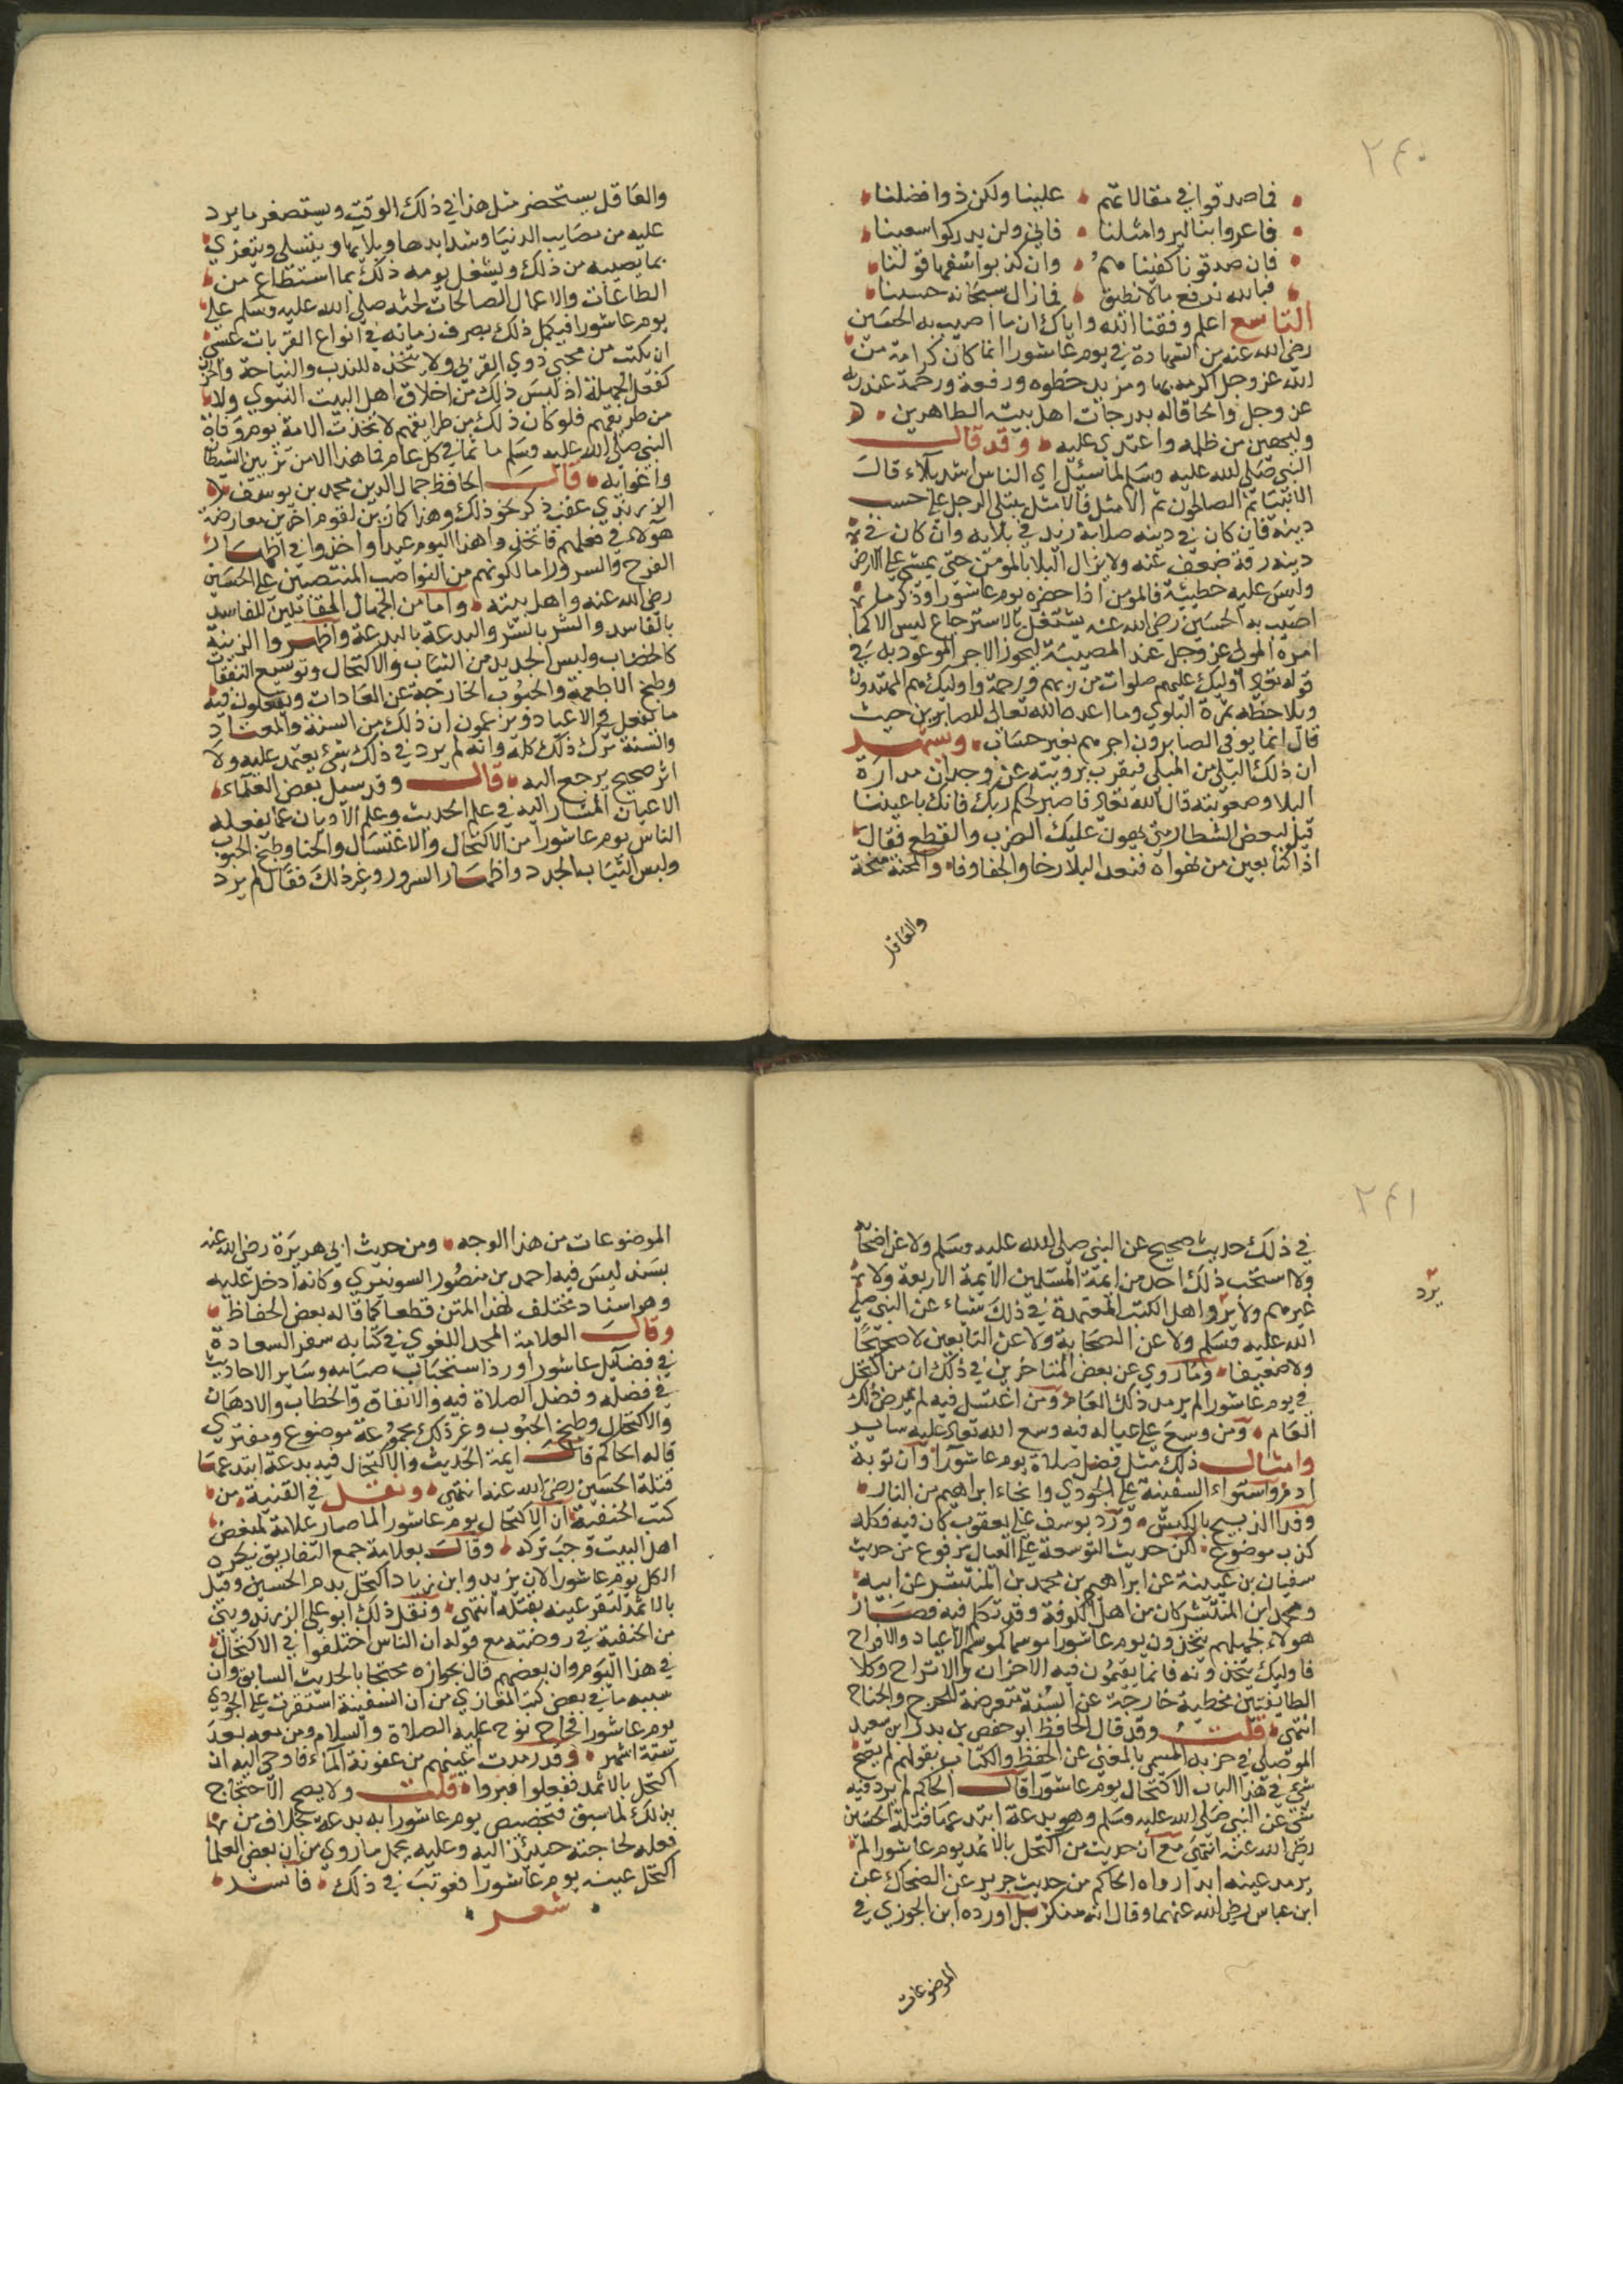 ٢٤٠
فما صدقوا في مقالاتهم علينا ولكن ذوا فضلنا
فان صدقونا كفينا هم وان كذبوا
فبالله ندفع مالا نطيق فما زال سبحانه حسبنا
التاسع اعلم وفقنا الله واياك ان ما اصيب به الحسين
رضي الله عنه من الشهادة في يوم عاشورا انما كان كرامة من
الله عز وجل اكرمه بها ومزيد حظوه ورفعة ورحمة عند ربه
عز وجل والحاقا له بدرجات اهل بيته الطاهرين
وليهين من ظلمه واعتدي عليه وقد قال
النبي صلي الله عليه وسلم لما سيل اي الناس اشد بلاء قال
الانبيا ثم الصالحون ثم الامثل فالامثل يبتلي الرجل علي حسب
دينه فان كان في دينه صلابة زيد في بلايه وان كان في
دينه رقة ضعف عنه ولا يزال البلا بالمومن حتي يمشي علي الارض
وليس عليه خطيئة فالمومن اذا حضره يوم عاشورا وذكر ما
اصيب به الحسين رضي الله عنه يشتغل بالاسترجاع ليس الا كما
امره المولي عز وجل عند المصيبة ليحوز الاجر الموعود به في
قوله تعالي اوليك عليهم صلوات من ربهم ورحمة واوليك هم المهتدون
ويلاحظ ثمرة البلوي وما اعده الله تعالي للصابرين حيث
قال انما يوفي الصابرون اجرهم بغير حساب ويشهد
ان ذلك البلي من المبلي فيقرب برويته عن وجدان مرارة
البلا وصعوبته قال الله تعالي فاصبر لحكم ربك فانك باعيننا
قيل لبعض الشطار متي يهون عليك الضرب والقطع فقال
اذا كنا بعين من نهواه فنعد البلا رخا والجفا وفا والمحنة منحة
والعاقل
والعاقل يستحضر مثل هذا في ذلك الوقت ويستصغر ما يرد
عليه من مصايب الدنيا وشدايدها وبلايها ويتسلي ويتعزي
بما يصيبه من ذلك ويشغل يومه ذلك بما استطاع من
الطاعات والاعمال الصالحات لحثه صلي الله عليه وسلم علي
يوم عاشورا فيكمل ذلك بصرف زمانه في انواع القربات عسي
ان يكتب من محبي ذوي القربي ولا يتخذه للندب والنياحة والحزن
كفعل الجهلة اذ ليس ذلك من اخلاق اهل البيت النبوي ولا
من طريقهم فلو كان ذلك من طرايقهم لاتخذت الامة يوم وفاة
النبي صلي الله عليه وسلم ماتما في كل عام فما هذا الا من تزيين الشيطان
واغوايه قال الحافظ جمال الدين محمد بن يوسف
الزرندي عقب ذكر نحو ذلك وهذا كما زين لقوم اخرين معارضة
هولاء في فعلهم فاتخذوا هذا اليوم عيدا واخذوا في اظهار
الفرح والسرور اما لكونهم من النواصب المتعصبين علي الحسين
رضي الله عنه واهل بيته واما من الجهال المقابلين للفاسد
بالفاسد والشر بالشر والبدعة بالبدعة واظهروا الزينة
كالخضاب ولبس الجديد من الثياب والاكتحال وتوسيع النفقات
وطبخ الاطعمة والحبوب الخارجة عن العادات ويفعلون فيه
ما يفعل في الاعياد ويزعمون ان ذلك من السنة والمعتاد
والسنة ترك ذلك كله وانه لم يرد في ذلك شي يعتمد عليه ولا
اثر صحيح يرجع اليه قال وقد سيل بعض العلماء
الاعيان المشار اليه في علم الحديث وعلم الاديان عما يفعله
الناس يوم عاشورا من الاكتحال والاغتسال والحنا وطبخ الحبوب
ولبس الثياب الجدد واظهار السرور وغير ذلك فقال لم يرد
٢٤١
في ذلك حديث صحيح عن النبي صلي الله عليه وسلم ولا عن اصحابه
ولا استحب ذلك احد من ايمة المسلمين الايمة الاربعة ولا
غيرهم ولا يروا اهل الكتب المعتمدة في ذلك شياء عن النبي صلي
يرد
الله عليه وسلم ولا عن الصحابة ولا عن التابعين لا صحيحا
ولا ضعيفا وما روي عن بعض المتاخرين في ذلك ان من اكتحل
في يوم عاشورا لم يرمد ذلك العام ومن اغتسل فيه لم يمرض ذلك
العام ومن وسع علي عياله فيه وسع الله تعالي عليه ساير
وامثال ذلك مثل فضل صلاة يوم عاشورا وان توبة
ادم واستواء السفينة علي الجودي وانجاء ابراهيم من النار
وفدا الذبيح بالكبش ورد يوسف علي يعقوب كان فيه فكله
كذب موضوع لكن حديث التوسعة علي العيال مرفوع من حديث
سفيان بن عيينة عن ابراهيم بن محمد بن المنتشر عن ابيه
ومحمد ابن المنتشر كان من اهل الكوفة وقد تكلم فيه فصار
هولاء لجهلهم يتخذون يوم عاشورا موسما كموسم الاعياد والافراح
فاوليك يتخذونه فانما يقيمون فيه الاحزان والاتراح وكلا
الطايفتين مخطية خارجة عن السنة متعرضة للحرج والجناح
انتهي قلت وقد قال الحافظ ابو حفص بن بدر ابن سعيد
الموصلي في حزبه المسمي بالمغني عن الحفظ والكتاب بقولهم لم يصح
شي في هذا الباب الاكتحال يوم عاشورا قال الحاكم لم يرد فيه
شي عن النبي صلي الله عليه وسلم وهو بدعة ابتدعها قتلة الحسين
رضي الله عنه انتهي مع ان حديث من اكتحل بالاثمد يوم عاشورا لم
يرمد عينه ابدا رواه الحاكم من حديث جرير عن الضحاك عن
ابن عباس رضي الله عنهما وقال انه منكر بل اورده ابن الجوزي في
الموضوعات
الموضوعات من هذا الوجه ومن حديث ابي هريرة رضي الله عنه
بسند ليس فيه احمد بن منصور السونيزي وكانه ادخل عليه
وهو اسناد مختلف لهذا المتن قطعا كما قاله بعض الحفاظ
وقال العلامة المجد اللغوي في كتابه سفر السعادة
في فضايل عاشورا ورد استحباب صيامه وساير الاحاديث
في فضله وفضل الصلاة فيه والانفاق والخطاب والادهان
والاكتحال وطبخ الحبوب وغير ذلك مجموعة موضوع ومفتري
قاله الحاكم قالت ايمة الحديث والاكتحال فيه بدعة ابتدعها
قتلة الحسين رضي الله عنه انتهي ونقل في القنية من
كتب الحنفية ان الاكتحال يوم عاشورا لما صار علامة لمبغض
اهل البيت وجب تركه وقال بعلامة جمع التفاريق يكره
الكل يوم عاشورا لان يزيد وابن زياد اكتحل بدم الحسين وقيل
بالاثمد لتقر عينه بقتله انتهي ونقل ذلك ابو علي الزرندويتي
من الحنفية في روضته مع قوله ان الناس اختلفوا في الاكتحال
في هذا اليوم وان بعضهم قال بجوازه محتجا بالحديث السابق وان
سببه ما في بعض كتب المغازي من ان السفينة استقرت علي الجودي
يوم عاشورا فخرج نوح عليه الصلاة والسلام ومن معه بعد
ستة اشهر وقد رمدت اعينهم من عفونة الماء فاوحي اليه ان
اكتحل بالاثمد ففعلوا فبروا قلت ولا يصح الاحتجاج
بذلك لما سبق فتخصيص يوم عاشورا به بدعة بخلاف من
فعله لحاجته حينئذ اليه وعليه يحمل ما روي من ان بعض العلما
اكتحل عينه يوم عاشورا فعوتب في ذلك فانشد
شعر